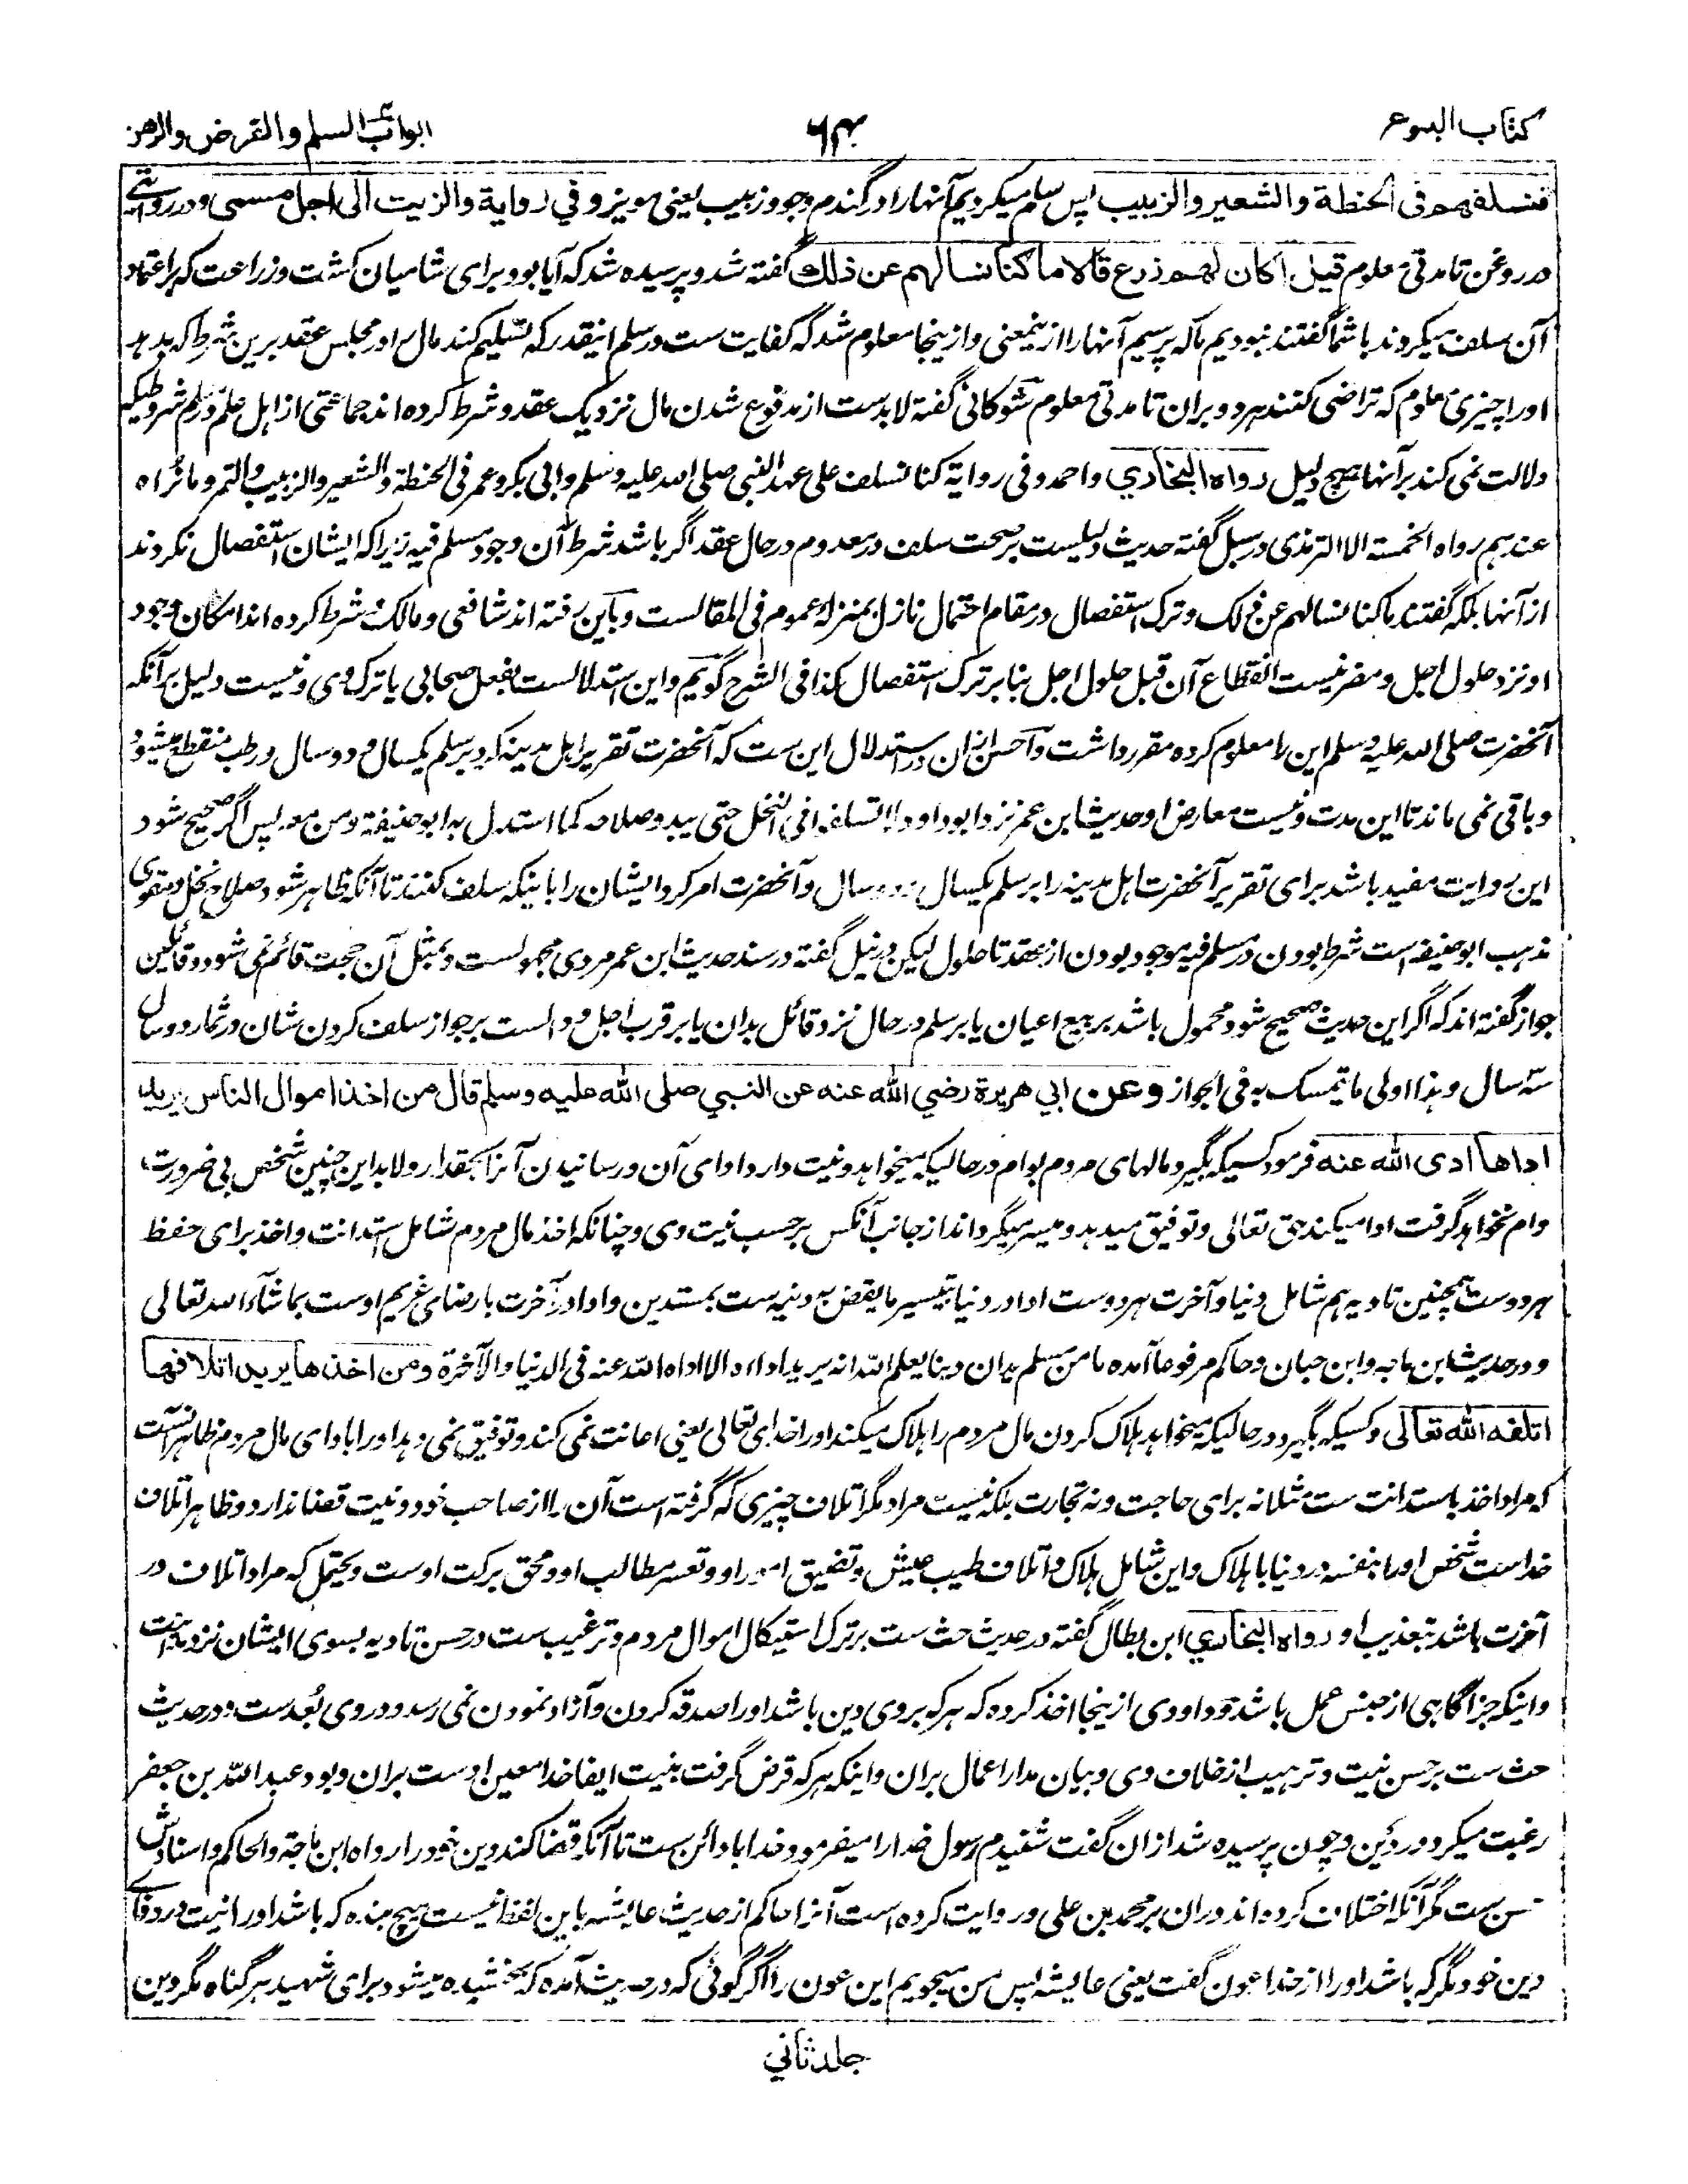 كتاب البيوع
۶۴
ابواب السلم والقرض والرهن
فنسلفهم فى الحنطة والشعير والزبيب پس سلم میکردیم آنها را در گندم وجو وزبیب یعنی مویز وفي رواية والزيت الى اجل مسمى ودر روایتے
در روغن تا مدتی معلوم قيل اكان لهم زرع قالا ما كنا نسالهم عن ذلك گفته شد و پرسیده شد که آیا بود برای شامیان کشت وزراعت که بر اعتماد
آن سلف میکردند با شما گفتند نبودیم ما که پرسیم آنها را از ینمعنی وازینجا معلوم شد که کفایت ست در سلم اینقدر که تسلیم کند مال را در مجلس عقد برین شرط که بدهد
او را چیزی معلوم که تراضی کنند هر دو بران تا مدتی معلوم شوکانی گفته لابدست از مدفوع شدن مال نزدیک عقد و شرط کرده اند جماعتی از اهل علم در سلم شروطیکه
دلالت نمی کند بر آنها هیچ دلیل رواه البخاري واحمد وفی رواية كنا نسلف على عهد النبي صلى الله عليه وسلم وابی بکر وعمر فی الحنطة والشعير والزبيب والتمر وما نراه
عندهم رواه الخمسة الا الترمذی در سبل گفته حدیث دلیلست بر صحت سلف در معدوم در حال عقد اگر باشد شرط آن وجود مسلم فیه زیرا که ایشان استفصال نکردند
از آنها بلکه گفتند ما کنا نسالهم عن ذلک و ترک استفصال در مقام احتمال نازل بمنزله عموم فی المقالست و باین رفته اند شافعی و مالک و شرط کرده اند امکان وجود
او نزد حلول اجل و مضر نیست انقطاع آن قبل حلول اجل بنا بر ترک استفصال کذا فی الشرح گویم و این استدلالست بفعل صحابی یا ترک وی و نیست دلیل بر آنکه
آنحضرت صلی الله علیه وسلم این را معلوم کرده مقرر داشت و احسن ازان در استدلال این ست که آنحضرت تقریر اهل مدینه کرد بر سلم یکسال و دو سال و رطب منقطع میشود
و باقی نمی ماند تا این مدت و نیست معارض او حدیث ابن عمر نزد ابو داود لا تسلفوا فی النخل حتى يبدو صلاحه كما استدل به ابو حنیفة ومن معه پس اگر صحیح شود
این روایت مفید باشد برای تقریر آنحضرت اهل مدینه را بر سلم یکسال و دو سال و آنحضرت امر کرد ایشان را باینکه سلف کنند تا آنکه ظاهر شود صلاح نخل و مقوی
مذهب ابو حنیفه است شرط بودن در مسلم فیه موجود بودن از عقد تا حلول لیکن در نیل گفته در سند حدیث ابن عمر مردی مجهولست و بمثل آن حجت قائم نمی شود و قائلین
جواز گفته اند که اگر این حدیث صحیح شود محمول باشد بر بیع اعیان یا بر سلم در حال نزد قائل بدان یا بر قرب اجل و دالست بر جواز سلف کردن شان در ثمار دو سال
سه سال وهذا اولى ما يتمسك به فی الجواز وعن ابي هريرة رضي الله عنه عن النبي صلى الله عليه وسلم قال من اخذ اموال الناس يريد
اداها ادى الله عنه فرمود کسیکه بگیرد مالهای مردم بوام در حالیکه میخواهد و نیت دارد ادای آن و رسانیدن آنرا بحقدار و لابد این چنین شخص بی ضرورت
وام نخواهد گرفت ادا میکند حق تعالی و توفیق میدهد و میسر میگرداند از جانب آنکس بر حسب نیت وی و چنانکه اخذ مال مردم شامل استدانت و اخذ برای حفظ
هر دوست همچنین تادیه هم شامل دنیا و آخرت هر دوست ادا در دنیا بتیسیر ما یقضی به دینه ست بمستدین و ادا در آخرت بارضای غریم اوست بما شاء الله تعالی
و در حدیث ابن ماجه وابن حبان وحاکم مرفوعا آمده ما من مسلم يدان دينا يعلم الله انه يريد اداءه الا اداه الله عنه فى الدنيا والآخرة ومن اخذها يريد اتلافها
اتلفه الله تعالى و کسیکه بگیرد در حالیکه میخواهد هلاک کردن مال مردم را هلاک میکند او را خدای تعالی یعنی اعانت نمی کند و توفیق نمی دهد او را با دای مال مردم ظاهر آنست
که مراد اخذ باستدانت ست مثلا نه برای حاجت و نه تجارت بلکه نیست مراد مگر اتلاف چیزی که گرفته است آن را از صاحب خود و نیت قضا ندارد و ظاهر اتلاف
خداست شخص او را بنفسه در دنیا با هلاک و این شامل هلاک و اتلاف طیب عیش و تضییق امور او و تعسر مطالب او و محق برکت اوست و یحتمل که مراد اتلاف در
آخرت باشد بتعذیب او رواه البخاري ابن بطال گفته در حدیث حث ست بر ترک استیکال اموال مردم و ترغیب ست در حسن تادیه بسوی ایشان نزد مداینت
و اینکه جزا گاهی از جنس عمل باشد و داودی ازینجا اخذ کرده که هر که بروی دین باشد او را صدقه کردن و آزاد نمودن نمی رسد و دروی بُعدست و در حدیث
حث ست بر حسن نیت و ترهیب از خلاف وی و بیان مدار اعمال بران و اینکه هر که قرض گرفت بنیت ایفا خدا معین اوست بران و بود عبد الله بن جعفر
رغبت میکرد در دَین و چون پرسیده شد ازان گفت شنیدم رسول خدا را میفرمود خدا با دائن ست تا آنکه قضا کند دین خود را رواه ابن ماجة والحاکم و اسنادش
حسن ست مگر آنکه اختلاف کرده اند دران بر محمد بن علی و روایت کرده است آنرا حاکم از حدیث عایشه باین لفظ نیست هیچ بنده که باشد او را نیت در وفای
دین خود مگر که باشد او را از خدا عون گفت یعنی عایشه پس من میجویم این عون را اگر گوئی که در حدیث آمده که بخشیده میشود برای شهید هر گناه مگر دین
جلد ثاني